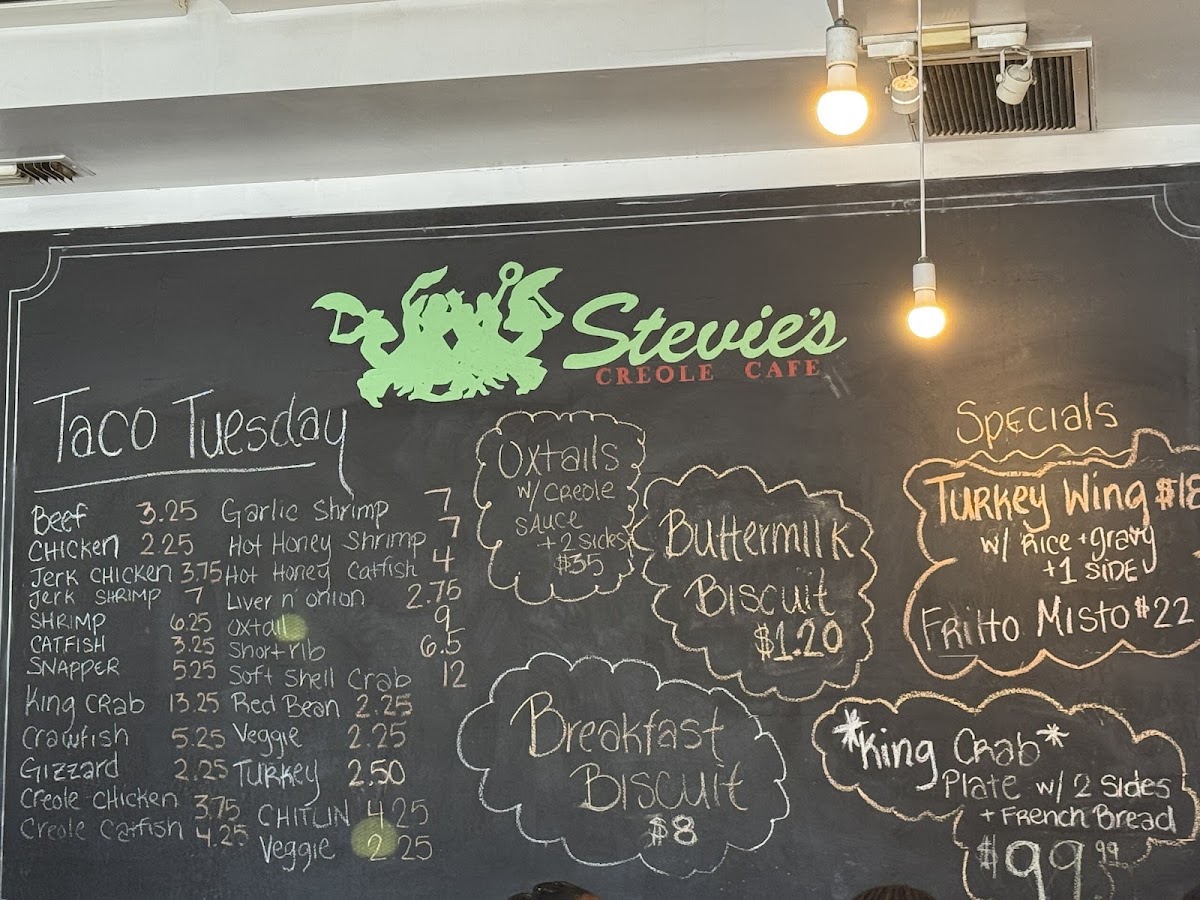 Stevie's
CREOLE CAFE
Taco Tuesday
Beef 3.25
CHICKEN 2.25
Jerk CHICKEN 3.75
Jerk SHRIMP 7
SHRIMP 6.25
CATFISH 3.25
SNAPPER 5.25
King CRAB 13.25
Crawfish 5.25
Gizzard 2.25
Creole CHICKEN 3.75
Creole Catfish 4.25
Garlic Shrimp 7
Hot Honey Shrimp 7
Hot Honey Catfish 4
Liver n' onion 2.75
oxtail 9
Short rib 6.5
Soft Shell Crab 12
Red Bean 2.25
Veggie 2.25
Turkey 2.50
CHITLIN 4.25
Veggie 2.25
Oxtails
w/ CREOLE
SAUCE
+ 2 Sides
$35
Buttermilk
Biscuit
$1.20
Breakfast
Biscuit
$8
Specials
Turkey Wing
w/ Rice + gravy
+ 1 SIDE
Fritto Misto $22
*King Crab*
Plate w/ 2 Sides
+ French Bread
$99.99